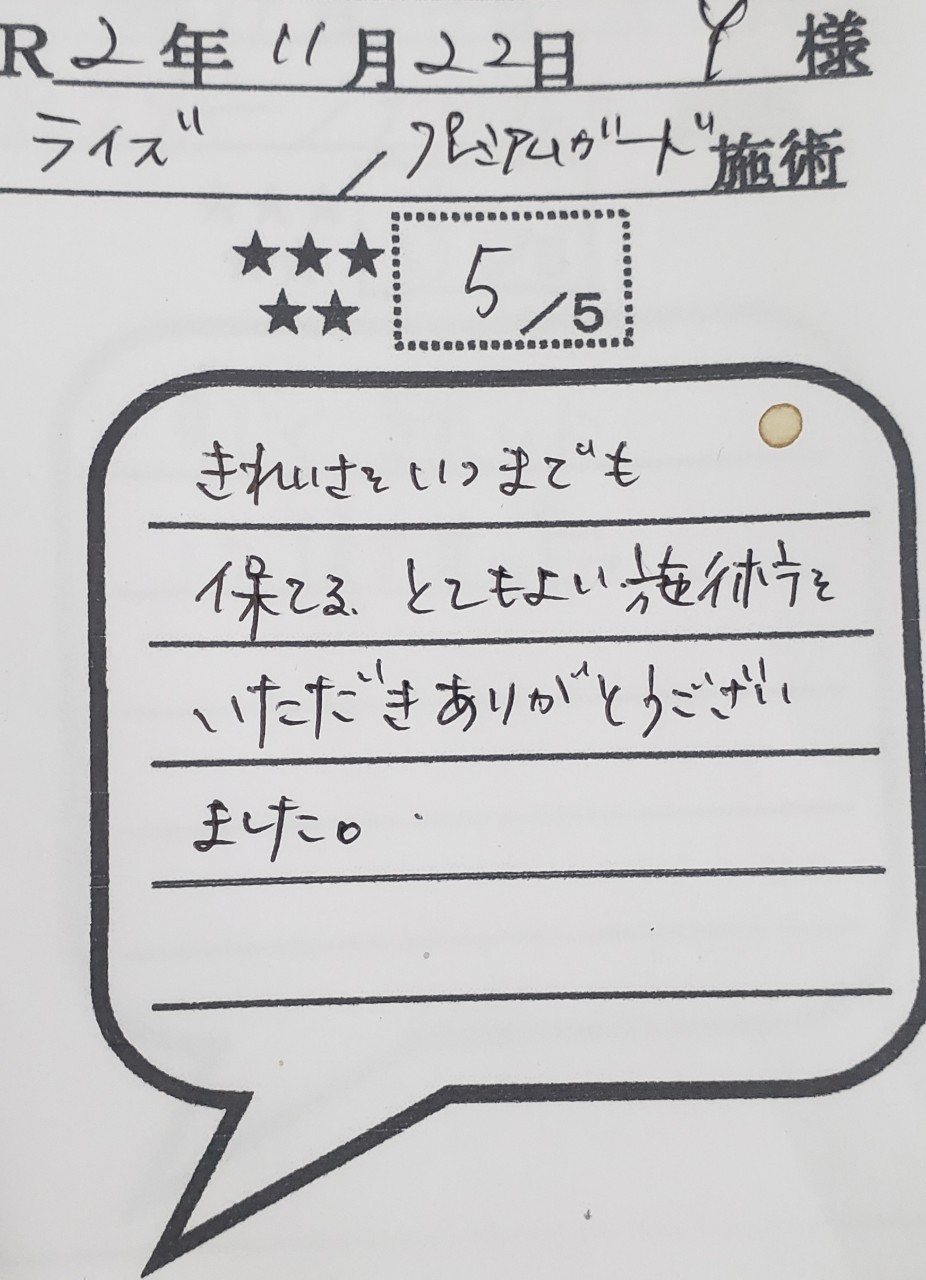 R2年11月22日 Y様
ライズ/プレミアムガード施術
★★★
★★
5/5
きれいさをいつまでも
保てる、とてもよい施術を
いただきありがとうござい
ました。